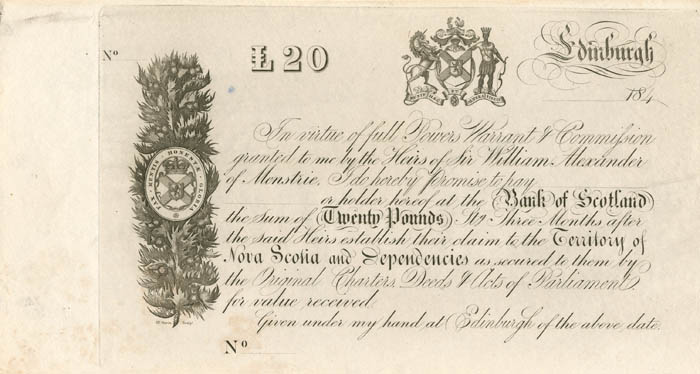 No
£ 20
Edinburgh
184
FAX MENTIS HONESTÆ GLORIA
In virtue of full Powers Warrant & Commission
granted to me by the Heirs of Sir William Alexander
of Menstrie, I do hereby Promise to pay
or holder hereof at the Bank of Scotland
the sum of Twenty Pounds Stg. Three Months after
the said Heirs establish their claim to the Territory of
Nova Scotia and Dependencies as secured to them by
the Original Charters, Deeds & Acts of Parliament.
for value received
Given under my hand at Edinburgh of the above date.
No